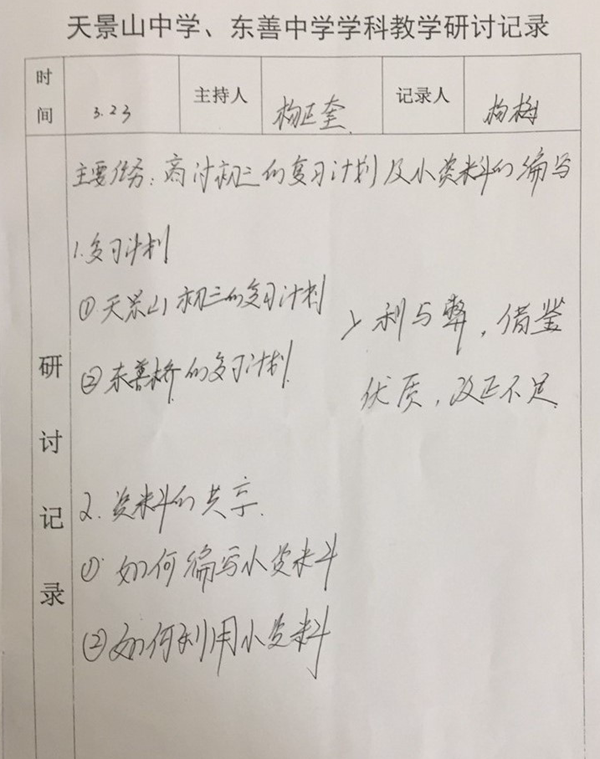 天景山中学、东善中学学科教学研讨记录
时间 3.23 主持人 杨正奎 记录人 杨梅
研讨记录
主要任务：商讨初三的复习计划及小资料的编写
1.复习计划
①天景山初三的复习计划
②东善桥的复习计划
>利与弊，借鉴
优质，改正不足
2.资料的共享.
①如何编写小资料
②如何利用小资料